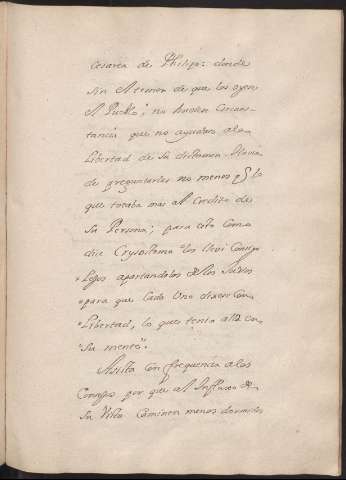 Cesarea de Philipo: donde
sin el temor de que los oyese
el Pueblo, no huviese Circuns-
tancia que no ayudase a la
Libertad de su dictamen. Havia
de preguntarles no menos q̃ lo
que tocaba mas al Credito de
su Persona; para esto como
dice Crysostomo "los llevò Consigo
"Lejos apartandolos de los Judios
"para que Cada Uno dixese Con
"Libertad, lo que tenia allà en
"su mente".
Asista con frequencia a los
Consejos por que al Influxo de
su Vista Caminen menos dormidos